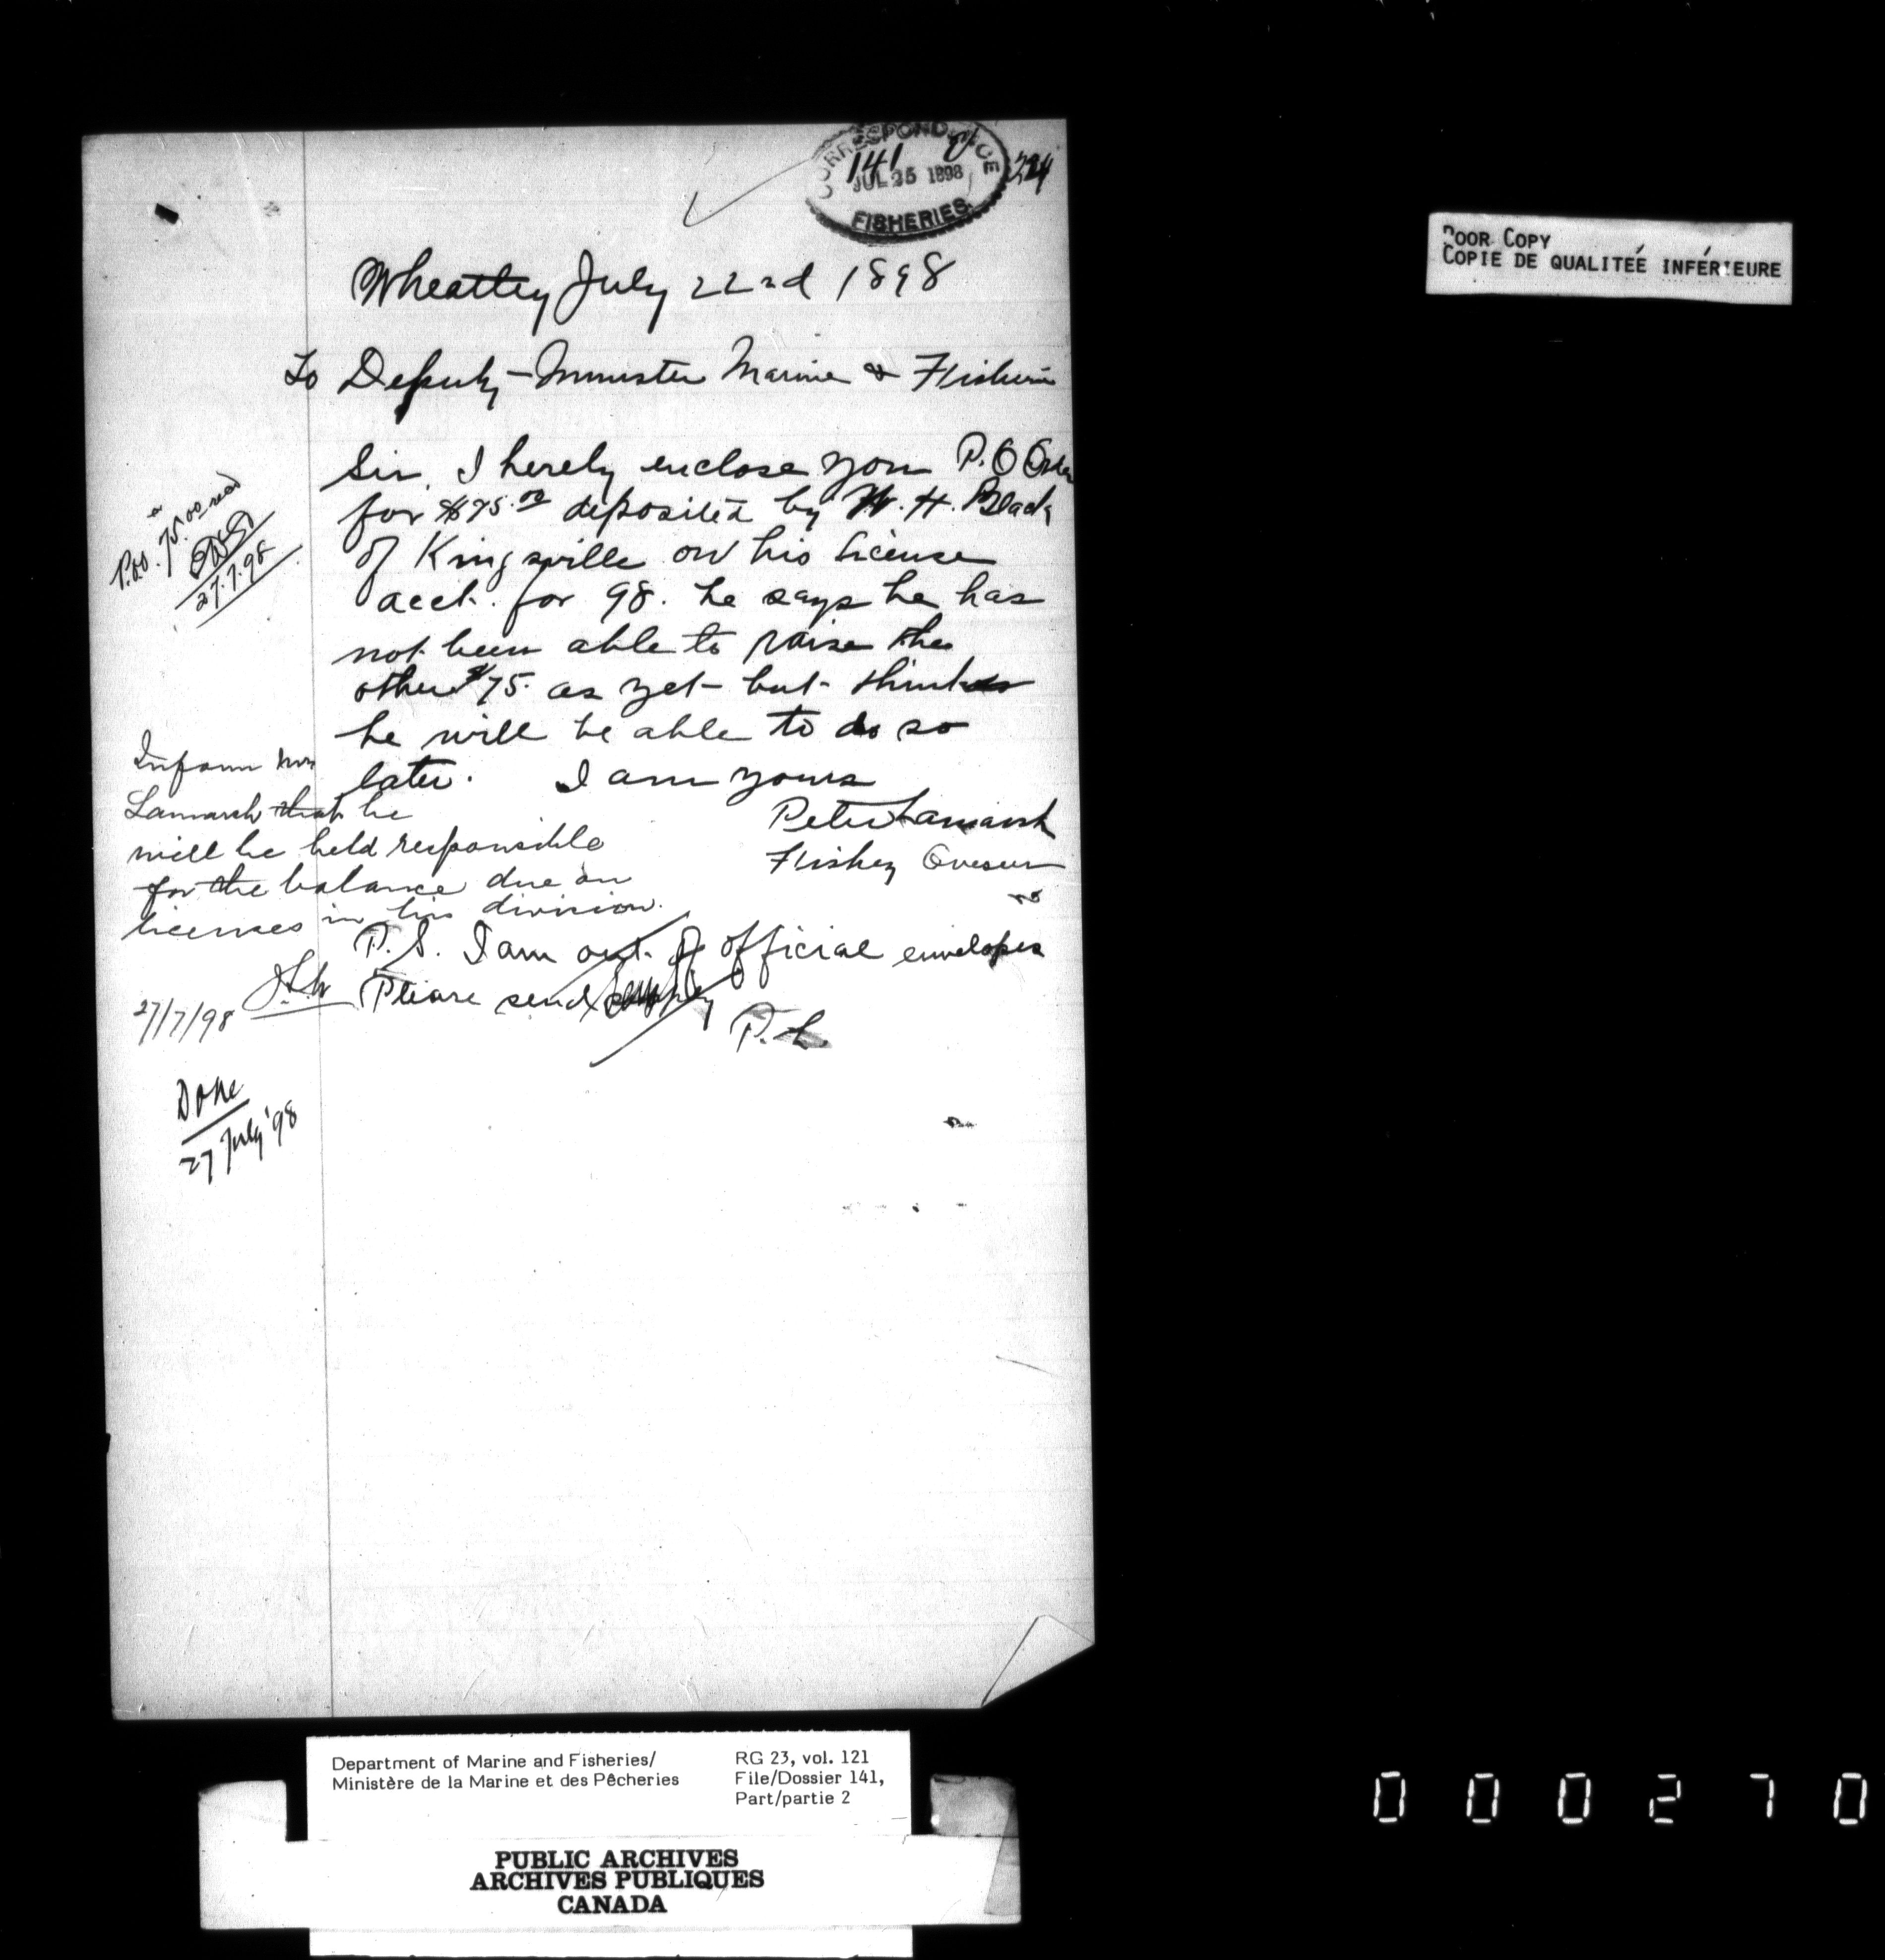 CORRESPONDENCE
141
JUL 25 1898
FISHERIES
224
Wheatley July 22nd 1898
To Deputy-Minister Marine & Fisheries
Sir, I hereby enclose you P.O Order
for $75.00 deposited by W. H. Black
of Kingsville on his license
acct. for 98. he says he has
not been able to raise the
other $75. as yet but thinks
he will be able to do so
later. I am yours
Peter Lamarsh
Fishey Overseer
P.S. I am out of official envelopes
Please send supply
P.L.
P.O.O. 75.00 recd
27.7.98
Inform Mr
Lamarsh that he
will be held responsible
for the balance due on
licenses in his division.
27/7/98
Done
27 July '98
POOR COPY
COPIE DE QUALITÉE INFÉRIEURE
Department of Marine and Fisheries/
Ministère de la Marine et des Pêcheries
RG 23, vol. 121
File/Dossier 141,
Part/partie 2
PUBLIC ARCHIVES
ARCHIVES PUBLIQUES
CANADA
000270